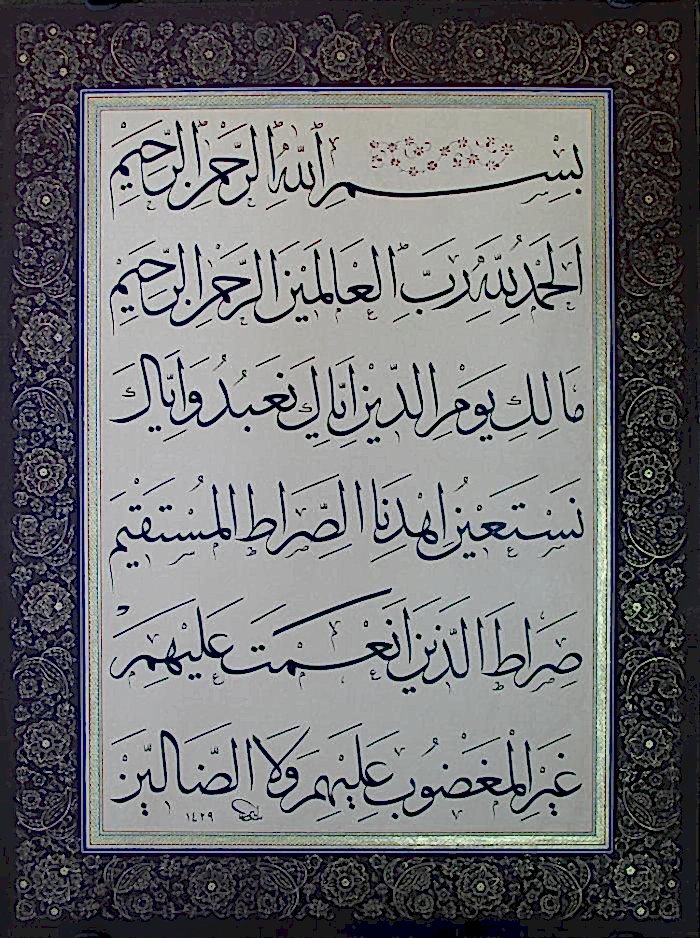 بِسْمِ اللهِ الرَّحْمٰنِ الرَّحِيمِ
اَلْحَمْدُ لِلّٰهِ رَبِّ الْعَالَمِينَ الرَّحْمٰنِ الرَّحِيمِ
مَالِكِ يَوْمِ الدِّينِ اِيَّاكَ نَعْبُدُ وَاِيَّاكَ
نَسْتَعِينُ اِهْدِنَا الصِّرَاطَ الْمُسْتَقِيمَ
صِرَاطَ الَّذِينَ اَنْعَمْتَ عَلَيْهِمْ
غَيْرِ الْمَغْضُوبِ عَلَيْهِمْ وَلَا الضَّالِّينَ
١٤٢٩